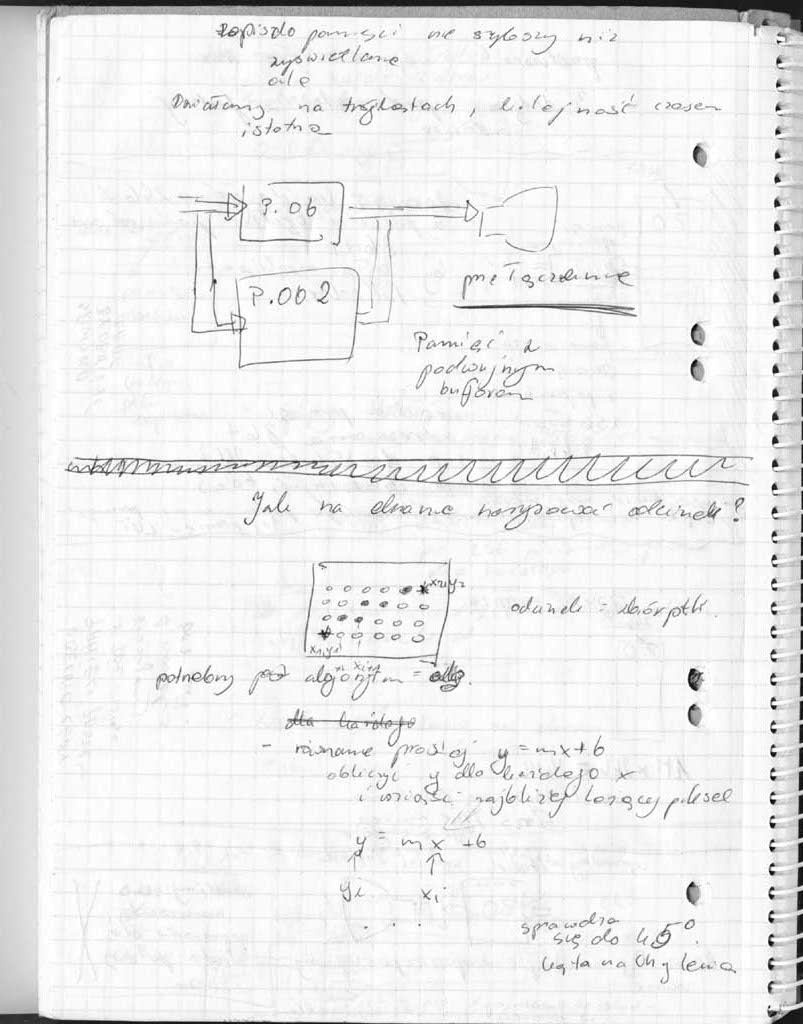 zapis do pamięci nie szybszy niż
wyświetlane
ale
Działamy na trójkątach, kolejność czasem
istotna
P. Ob
P. Ob 2
przełączanie
Pamięć z
podwójnym
buforem
Jak na ekranie narysować odcinek?
x2,y2
odcinek = zbiór ptk.
x1,y1
xi xi+1
potrzebny jest algorytm =
dla każdego
- równanie prostej y = mx + b
obliczyć y dla każdego x
i wziąść najbliżej leżący piksel
y = mx + b
yi xi
. . .
sprawdza
się do 45°
kąta nachylenia